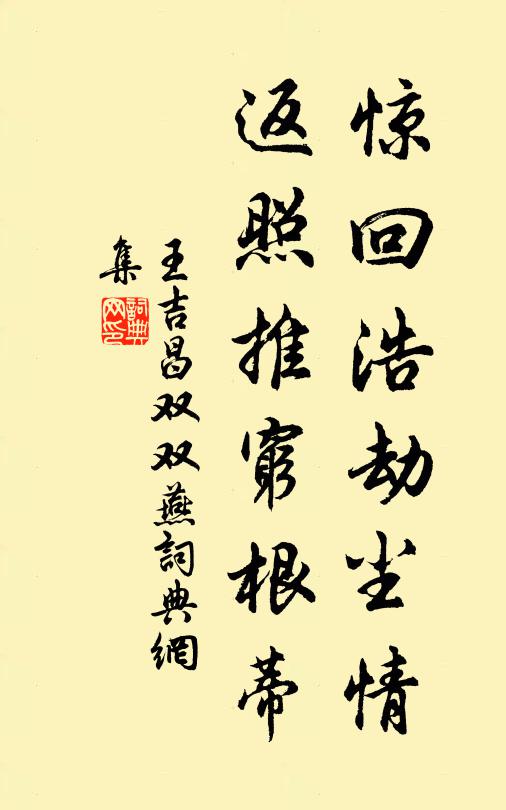 惊回浩劫尘情
返照推穷根蒂
王吉昌双双燕詞典網
集
詞典网印